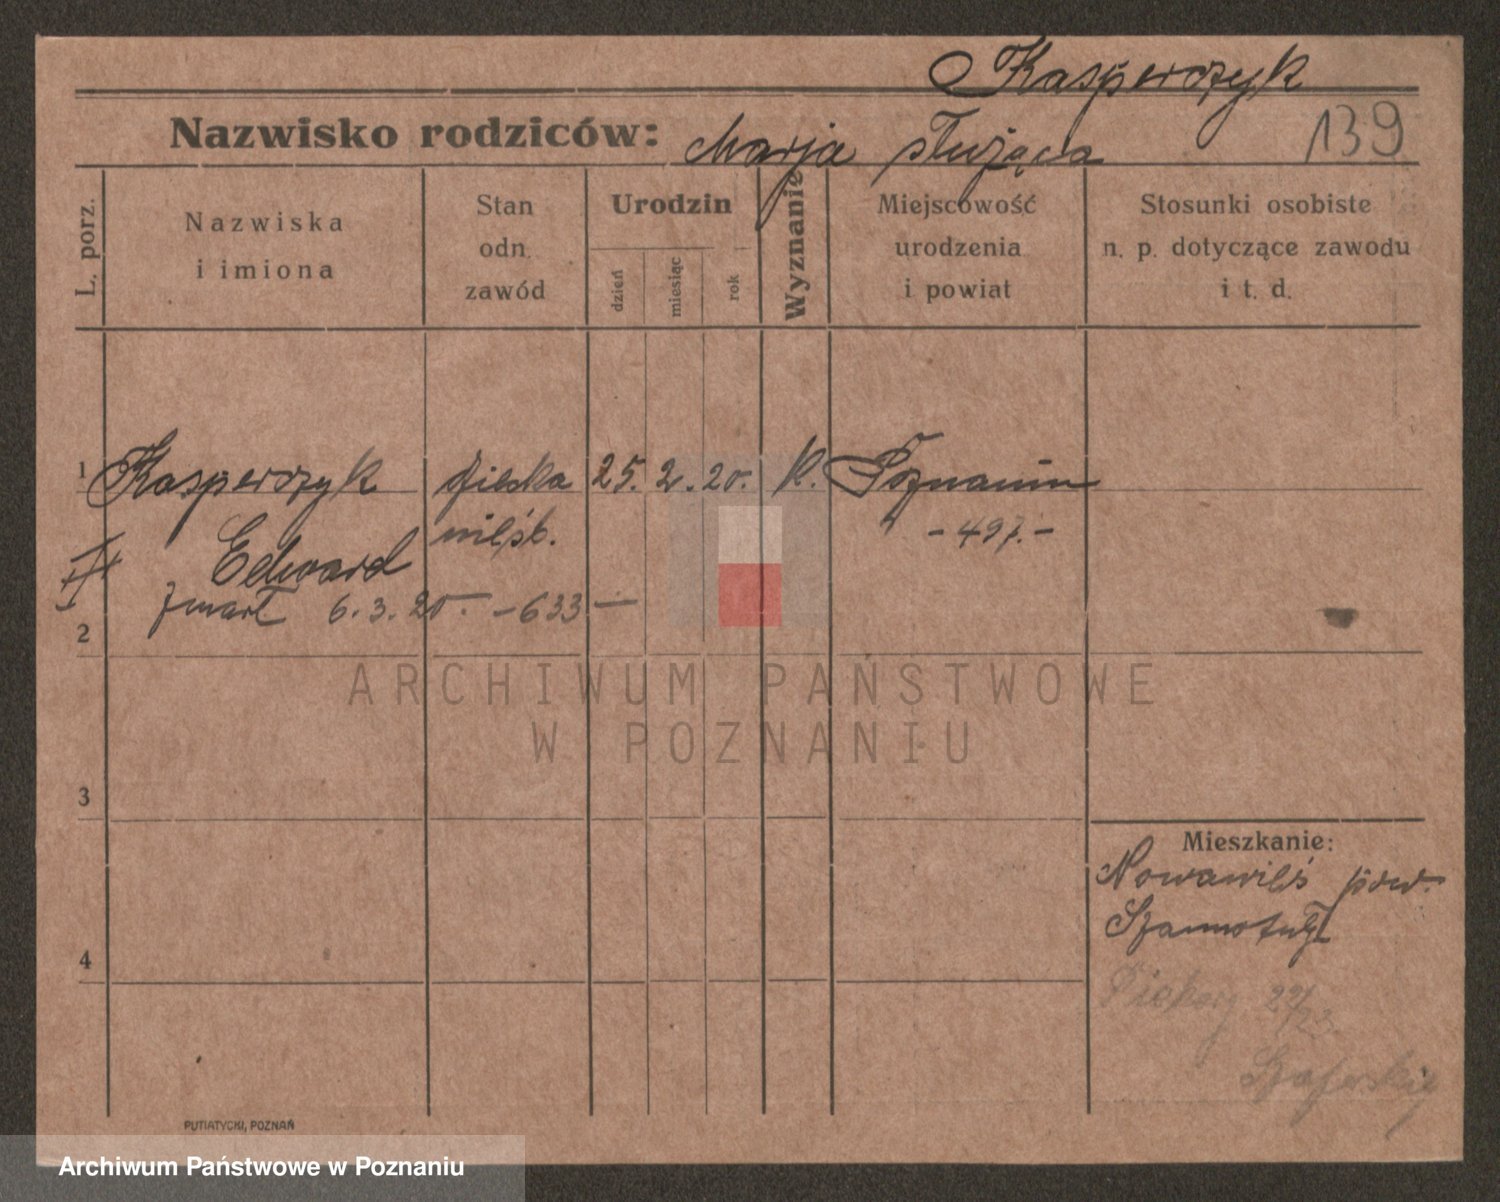 Kasperczyk
Nazwisko rodziców: Marja służąca 139
L. porz.
Nazwiska
i imiona
Stan
odn.
zawód
Urodzin
dzień
miesiąc
rok
Wyznanie
Miejscowość
urodzenia
i powiat
Stosunki osobiste
n. p. dotyczące zawodu
i t. d.
1 Kasperczyk 25. 2. 20. k. Poznaniu
nieśb. - 497. -
Edward
zmarł 6. 3. 20. - 633 -
2
ARCHIWUM PAŃSTWOWE
W POZNANIU
3
Mieszkanie:
Nowawieś pow.
Szamotuły
4
Piekary 22/23.
PUTIATYCKI, POZNAŃ
Archiwum Państwowe w Poznaniu